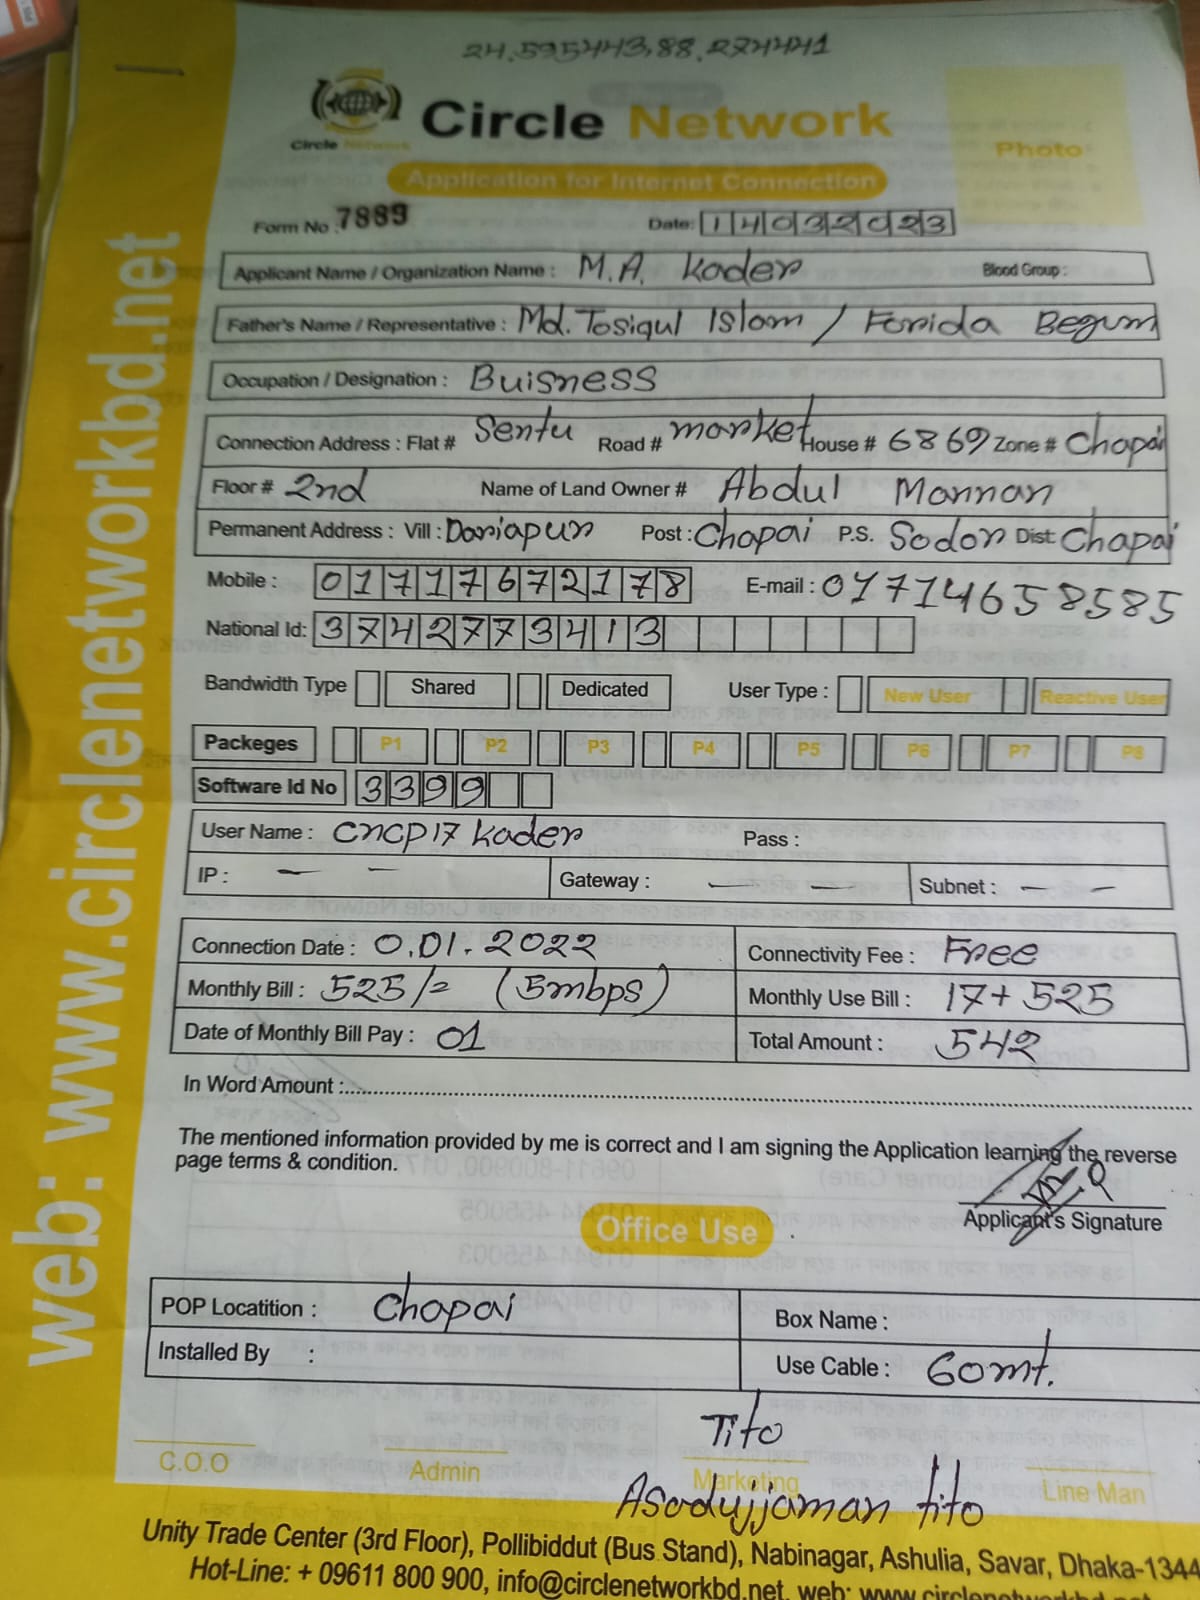 24.595443,88.274441
Circle Network
Circle Network
Photo
Application for Internet Connection
Form No : 7889 Date: 14032023
Applicant Name / Organization Name : M.A. Kader Blood Group :
Father's Name / Representative : Md. Tosiqul Islam / Forida Begum
Occupation / Designation : Buisness
Connection Address : Flat # Sentu Road # market House # 6869 Zone # Chapai
Floor # 2nd Name of Land Owner # Abdul Mannan
Permanent Address : Vill : Dariapur Post : Chapai P.S. Sodor Dist: Chapai
Mobile : 01717672178 E-mail : 01714658585
National Id: 3742773413
Bandwidth Type Shared Dedicated User Type : New User Reactive User
Packeges P1 P2 P3 P4 P5 P6 P7 P8
Software Id No 3399
User Name : CNCP17 Kader Pass :
IP : — — Gateway : — — Subnet : — —
Connection Date : 0.01.2022 Connectivity Fee : Free
Monthly Bill : 525/= (5mbps) Monthly Use Bill : 17+ 525
Date of Monthly Bill Pay : 01 Total Amount : 542
In Word Amount :
The mentioned information provided by me is correct and I am signing the Application learning the reverse
page terms & condition.
Applicant's Signature
Office Use
POP Locatition : Chapai Box Name :
Installed By : Use Cable : 60mt.
Tito
C.O.O Admin Marketing Line Man
Asadujjaman tito
Unity Trade Center (3rd Floor), Pollibiddut (Bus Stand), Nabinagar, Ashulia, Savar, Dhaka-1344
Hot-Line: + 09611 800 900, info@circlenetworkbd.net, web: www.circlenetworkbd.net
web: www.circlenetworkbd.net